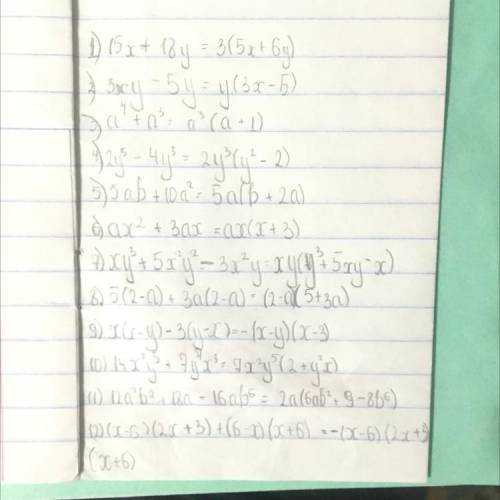 1) 15x + 18y = 3(5x + 6y)
2) 3xy - 5y = y(3x - 5)
3) a⁴ + a³ = a³(a + 1)
4) 2y⁵ - 4y³ = 2y³(y² - 2)
5) 5ab + 10a² = 5a(b + 2a)
6) ax² + 3ax = ax(x + 3)
7) xy³ + 5x²y² - 3x²y = xy(y³ + 5xy - x)
8) 5(2-a) + 3a(2-a) = (2-a)(5+3a)
9) x(x-y) - 3(y-x) = -(x-y)(x-3)
10) 14x²y⁵ + 7y⁷x³ = 7x²y⁵(2 + y²x)
11) 12a²b² + 18a - 16ab⁶ = 2a(6ab² + 9 - 8b⁶)
12) (x-6)(2x+3) + (6-x)(x+6) = -(x-6)(2x+3)
(x+6)